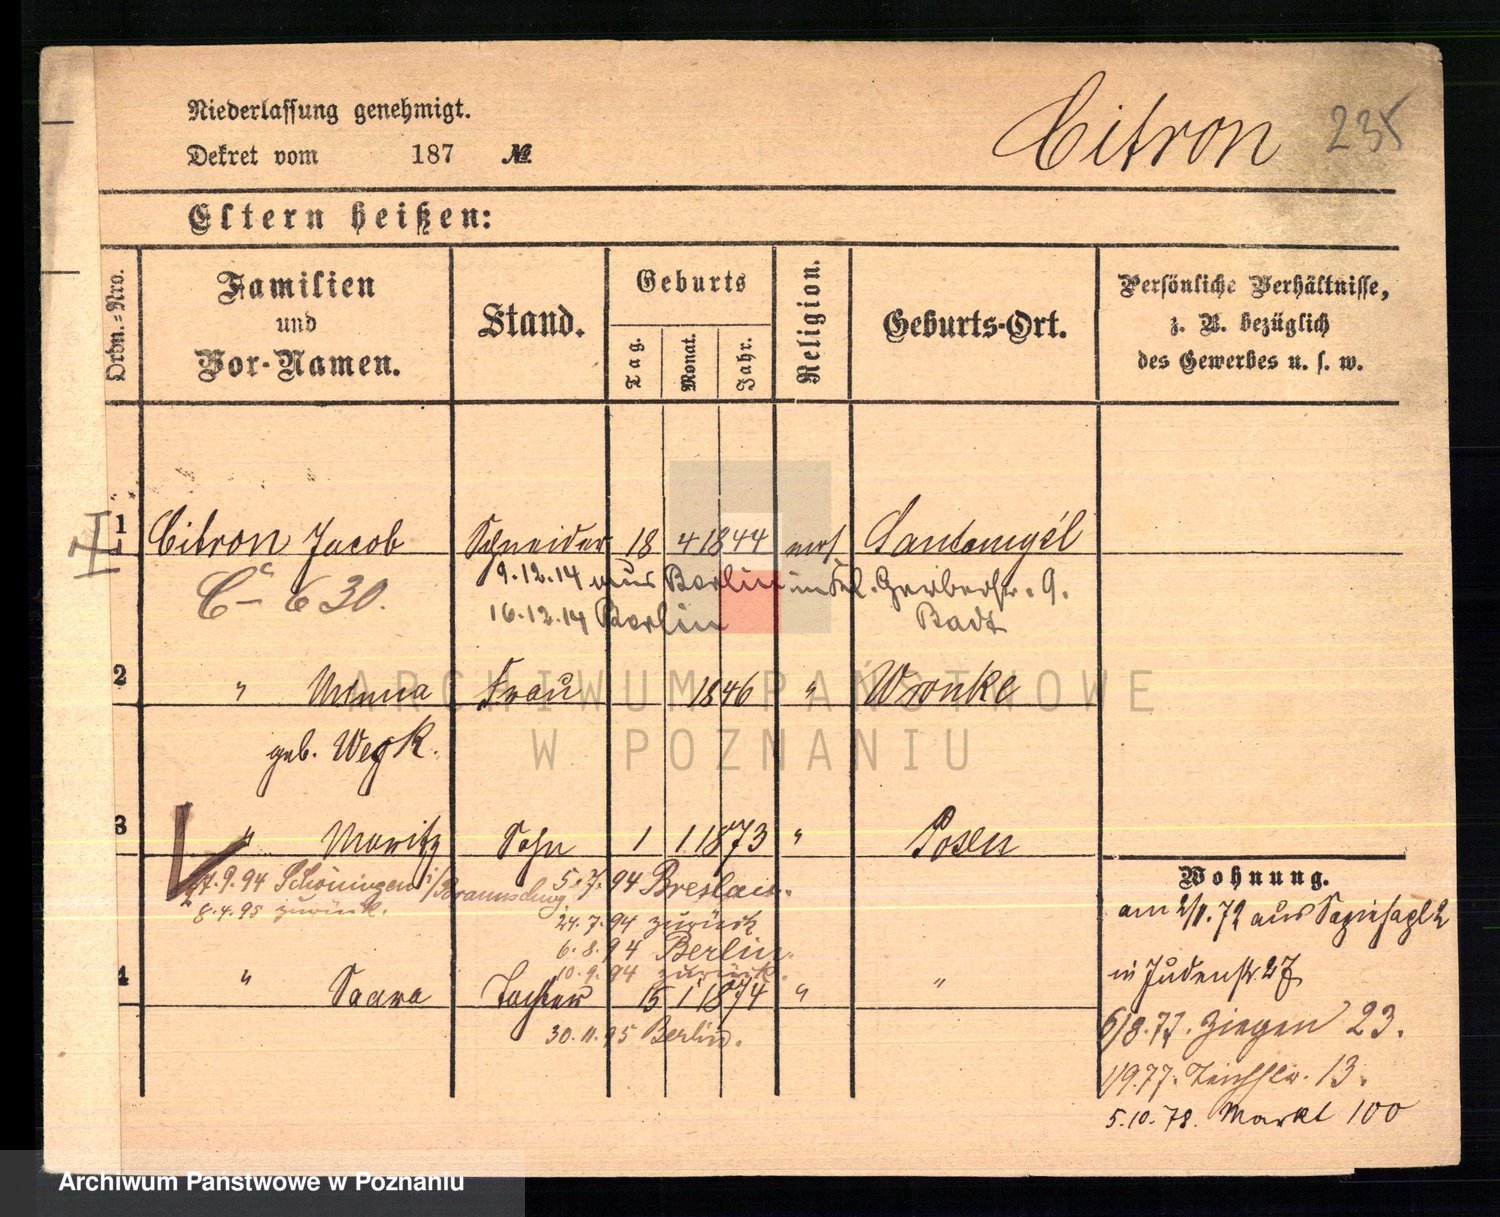 Niederlassung genehmigt.
Dekret vom 187 №
Citron 235
Eltern heißen:
Ordn.-Nro.
Familien und Vor-Namen.
Stand.
Geburts
Tag.
Monat.
Jahr.
Religion.
Geburts-Ort.
Persönliche Verhältnisse,
z. B. bezüglich
des Gewerbes u. s. w.
1 Citron Jacob Schneider 18 4 1844 mos Santomyśl
C 630.
9.12.14 aus Berlin Gerberstr. 9.
16.12.14 Berlin Badt
2 " Minna Frau 1846 " Wronke
geb.
3 " Moritz Sohn 1 1 1873 " Posen
27.9.94 Schöningen i/Braunschwg. 5.7.94 Breslau.
8.4.95 zurück.
24.7.94 zurück
6.8.94 Berlin.
10.9.94 zurück.
4 " Saara Tochter 15 1 1874 " "
30.11.95 Berlin.
Wohnung.
am 2/1.72 aus
in Judenstr. 27
6/8.77. Ziegen 23.
1/9.77. Teichstr. 13.
5.10.78. Markt 100
ARCHIWUM PAŃSTWOWE
W POZNANIU
Archiwum Państwowe w Poznaniu